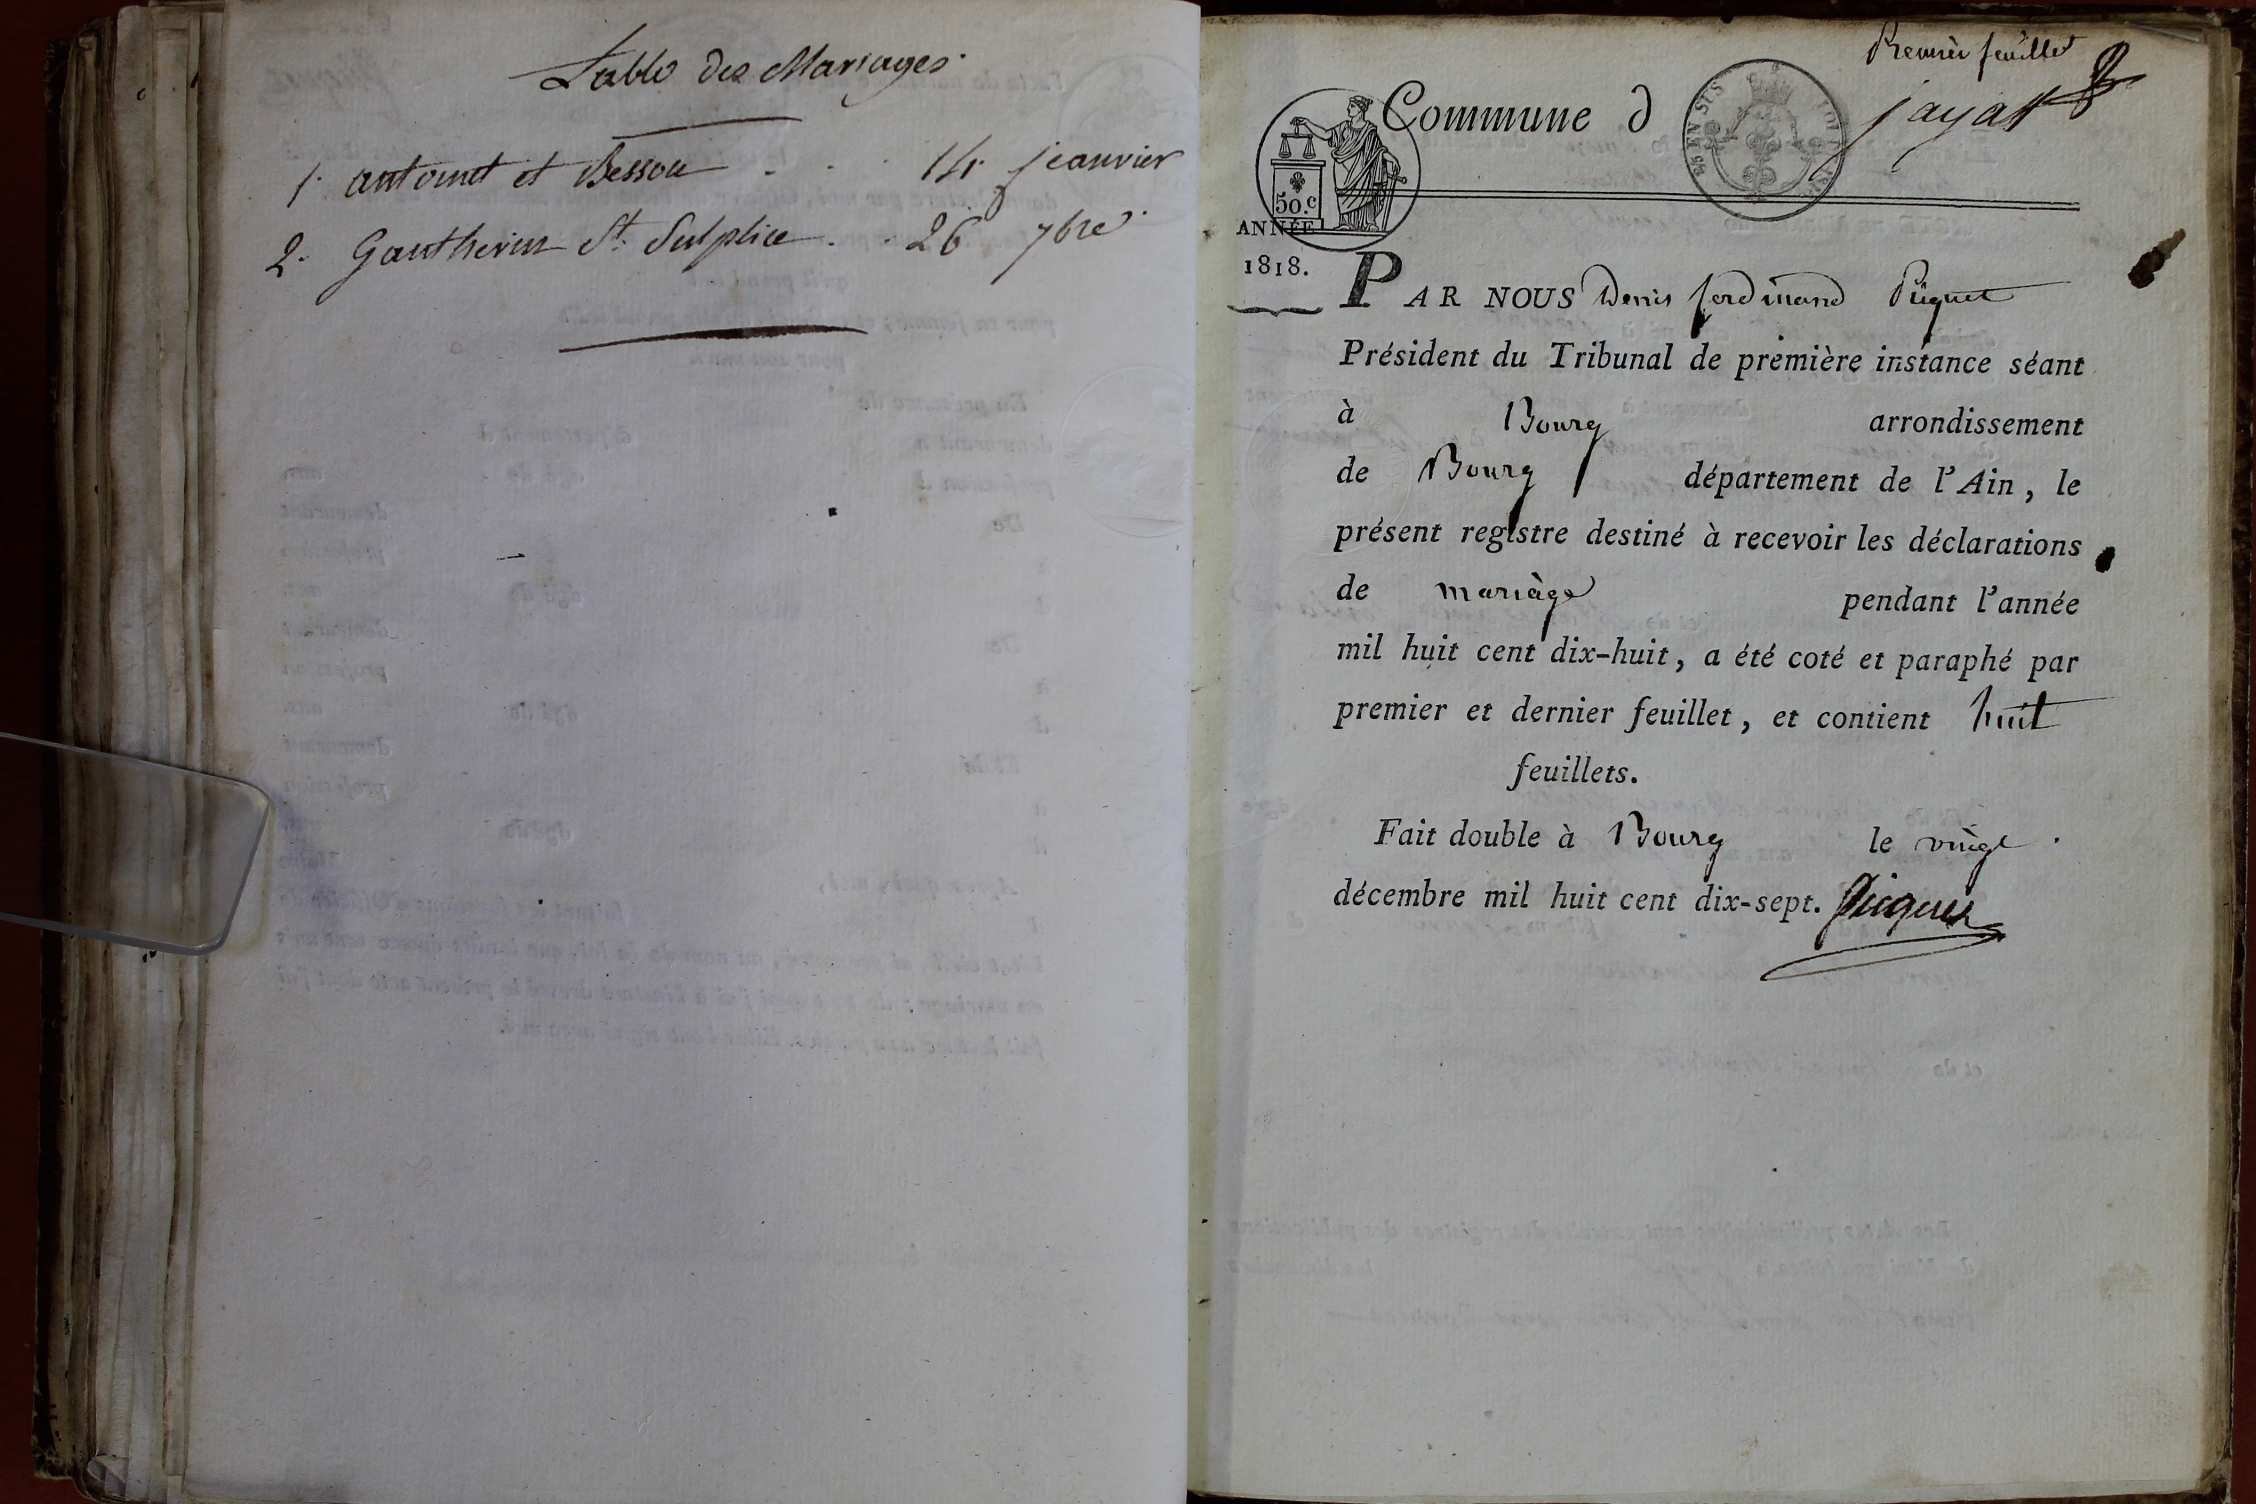 Table des Mariages.
1. antoinet et Besson . . 14. jeanvier
2. Gautherin St. Sulplice . . 26 7bre.
Premier feuillet
Commune d jayat
50.c
EN SUS
ANNÉE
1818.
PAR NOUS Denis ferdinand Piquet
Président du Tribunal de première instance séant
à Bourg arrondissement
de Bourg département de l'Ain, le
présent registre destiné à recevoir les déclarations
de mariage pendant l'année
mil huit cent dix-huit, a été coté et paraphé par
premier et dernier feuillet, et contient huit
feuillets.
Fait double à Bourg le vingt
décembre mil huit cent dix-sept. Picquet